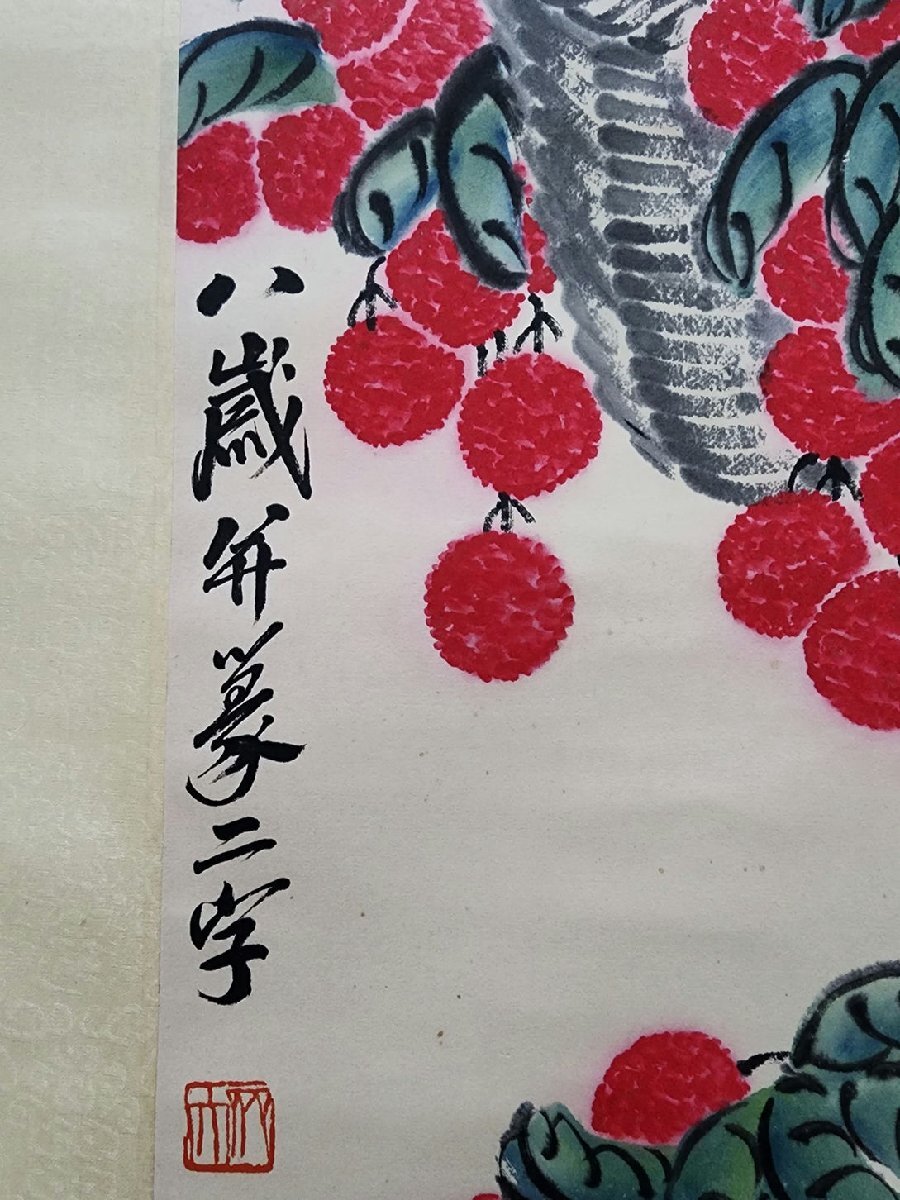 八歲并篆二字